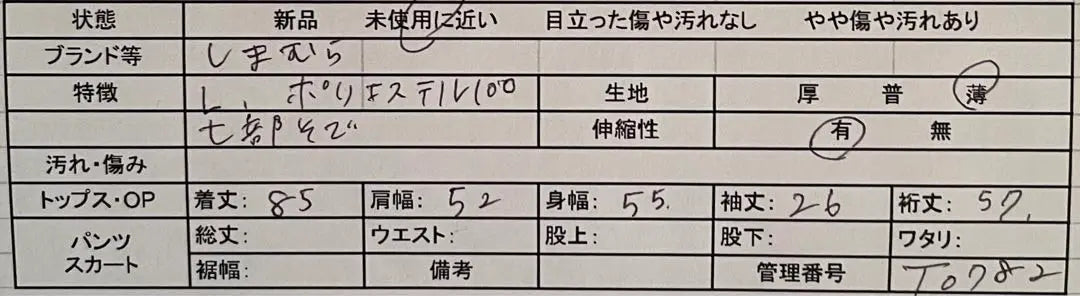 状態 新品 未使用に近い 目立った傷や汚れなし やや傷や汚れあり
ブランド等 しまむら
特徴 L、ポリエステル100 生地 厚 普 薄
七部そで 伸縮性 有 無
汚れ・傷み
トップス・OP 着丈: 85 肩幅: 52 身幅: 55. 袖丈: 26 裄丈: 57.
パンツ スカート 総丈: ウエスト: 股上: 股下: ワタリ:
裾幅: 備考 管理番号 T0782